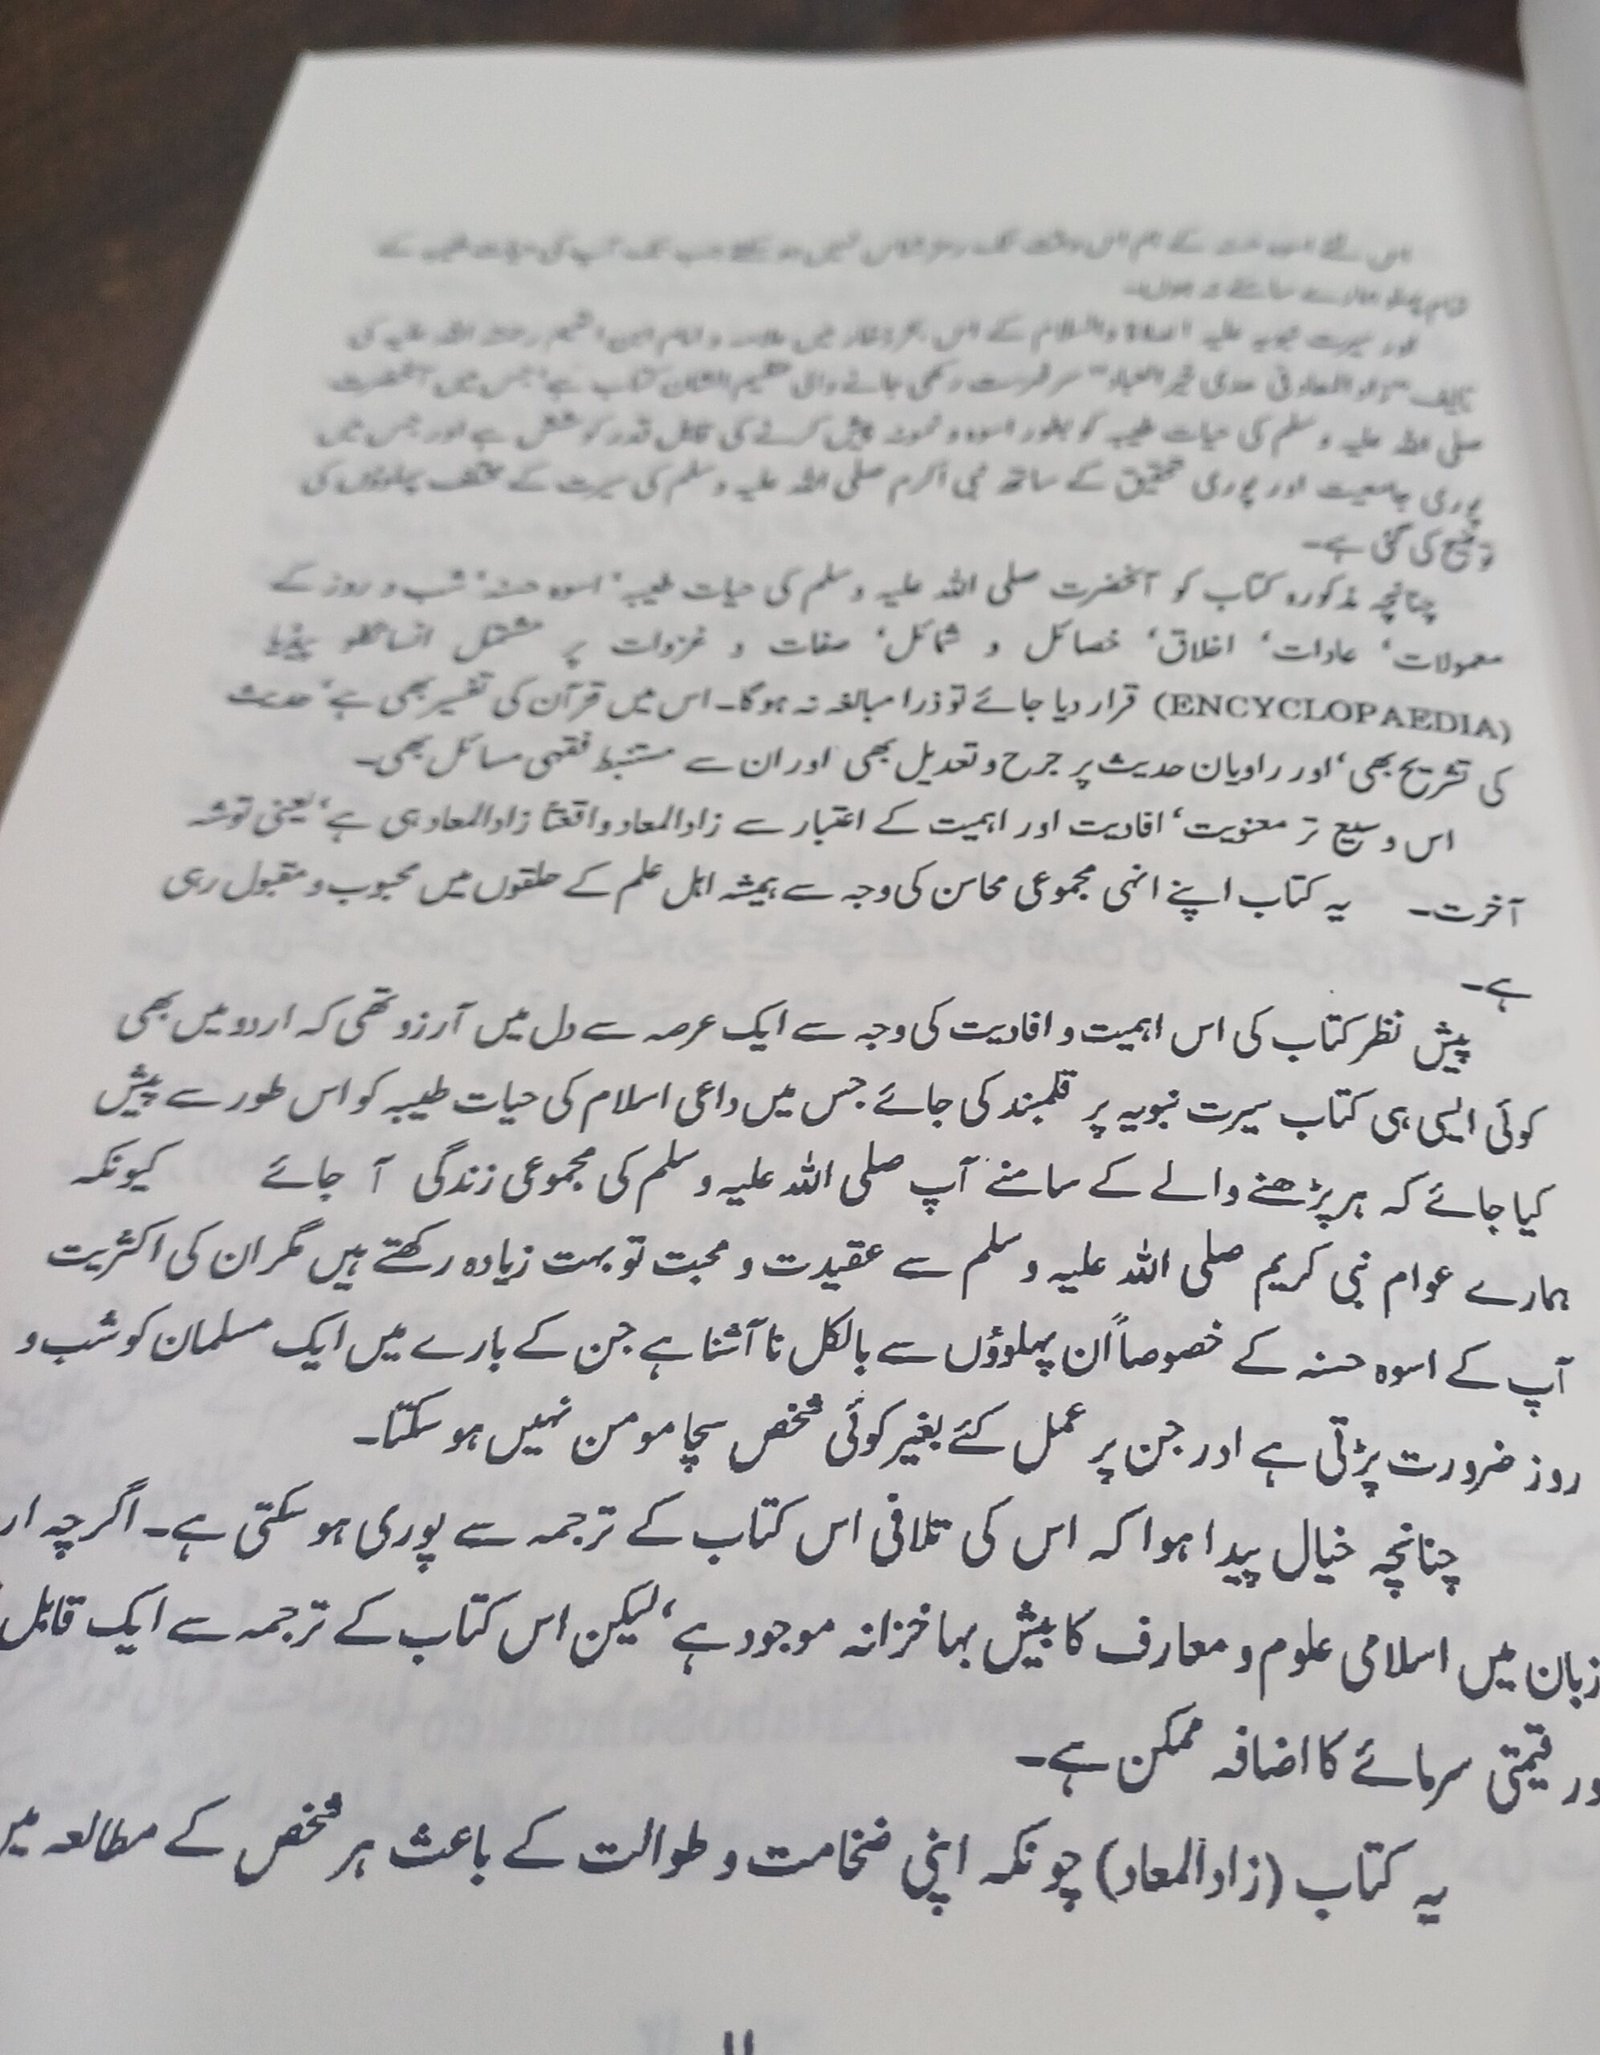 اس لئے اسوہ حسنہ کے ہم اس وقت تک رمز شناس نہیں ہو سکتے جب تک آپ کی حیات طیبہ کے
تمام پہلو ہمارے سامنے نہ ہوں۔
اور سیرت نبویہ علیہ الصلاۃ والسلام کے اس بحر ذخار میں علامہ و امام ابن القیم رحمۃ اللہ علیہ کی
تالیف "زاد المعاد فی ھدی خیر العباد" سر فہرست رکھی جانے والی عظیم الشان کتاب ہے' جس میں آنحضرت
صلی اللہ علیہ وسلم کی حیات طیبہ کو بطور اسوہ و نمونہ پیش کرنے کی قابل قدر کوشش ہے اور جس میں
پوری جامعیت اور پوری تحقیق کے ساتھ نبی اکرم صلی اللہ علیہ وسلم کی سیرت کے مختلف پہلوؤں کی
توضیح کی گئی ہے۔
چنانچہ مذکورہ کتاب کو آنحضرت صلی اللہ علیہ وسلم کی حیات طیبہ' اسوہ حسنہ' شب و روز کے
معمولات' عادات' اخلاق' خصائل و شمائل' صفات و غزوات پر مشتمل انسائیکلو پیڈیا
(ENCYCLOPAEDIA) قرار دیا جائے تو ذرا مبالغہ نہ ہوگا۔ اس میں قرآن کی تفسیر بھی ہے' حدیث
کی تشریح بھی' اور راویان حدیث پر جرح و تعدیل بھی اور ان سے مستنبط فقہی مسائل بھی۔
اس وسیع تر معنویت' افادیت اور اہمیت کے اعتبار سے زادالمعاد واقعتاً زادالمعاد ہی ہے' یعنی توشہ
آخرت۔ یہ کتاب اپنے انہی مجموعی محاسن کی وجہ سے ہمیشہ اہل علم کے حلقوں میں محبوب و مقبول رہی
ہے۔
پیش نظر کتاب کی اس اہمیت و افادیت کی وجہ سے ایک عرصہ سے دل میں آرزو تھی کہ اردو میں بھی
کوئی ایسی ہی کتاب سیرت نبویہ پر قلمبند کی جائے جس میں داعی اسلام کی حیات طیبہ کو اس طور سے پیش
کیا جائے کہ ہر پڑھنے والے کے سامنے آپ صلی اللہ علیہ وسلم کی مجموعی زندگی آ جائے کیونکہ
ہمارے عوام نبی کریم صلی اللہ علیہ وسلم سے عقیدت و محبت تو بہت زیادہ رکھتے ہیں مگر ان کی اکثریت
آپ کے اسوہ حسنہ کے خصوصاً ان پہلوؤں سے بالکل نا آشنا ہے جن کے بارے میں ایک مسلمان کو شب و
روز ضرورت پڑتی ہے اور جن پر عمل کئے بغیر کوئی شخص سچا مومن نہیں ہو سکتا۔
چنانچہ خیال پیدا ہوا کہ اس کی تلافی اس کتاب کے ترجمہ سے پوری ہو سکتی ہے۔ اگرچہ ار
زبان میں اسلامی علوم و معارف کا بیش بہا خزانہ موجود ہے' لیکن اس کتاب کے ترجمہ سے ایک قابل
ور قیمتی سرمائے کا اضافہ ممکن ہے۔
یہ کتاب (زادالمعاد) چونکہ اپنی ضخامت و طوالت کے باعث ہر شخص کے مطالعہ میں